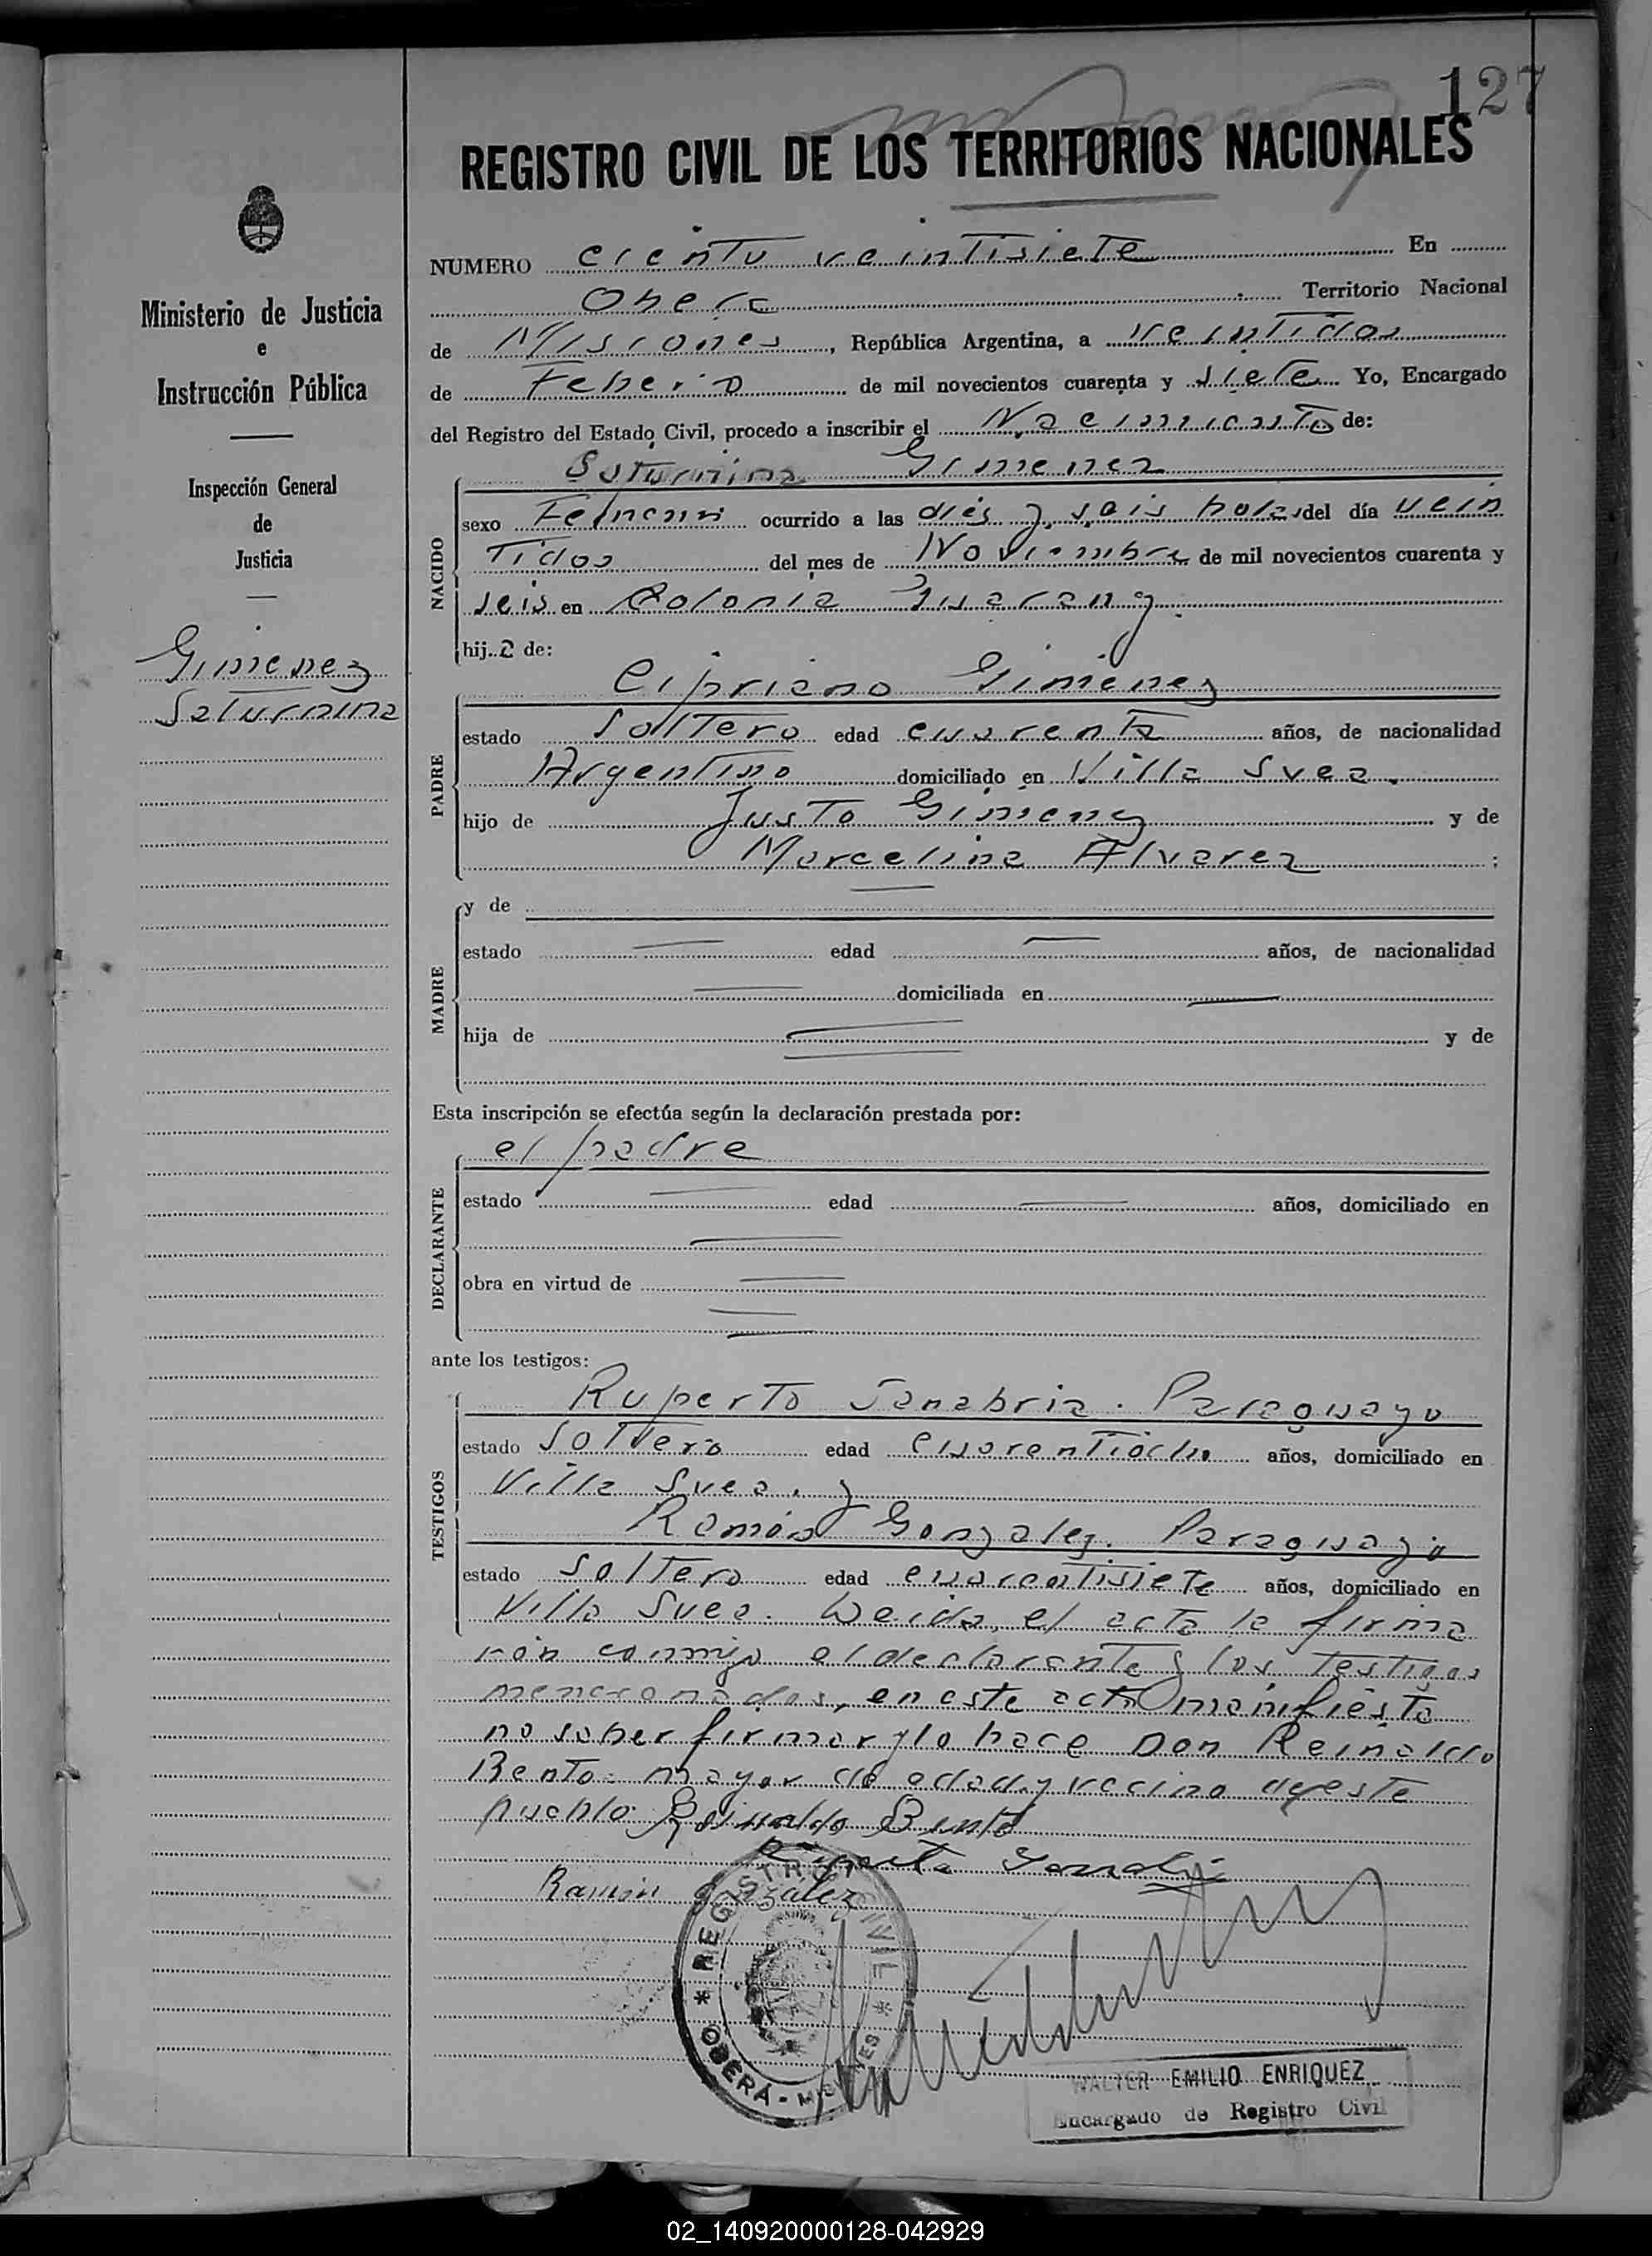 127
REGISTRO CIVIL DE LOS TERRITORIOS NACIONALES
Ministerio de Justicia
e
Instrucción Pública
Inspección General
de
Justicia
Gimenez
Saturnina
NUMERO ciento veintisiete En
Obera Territorio Nacional
de Misiones, República Argentina, a veintidos
de Febero de mil novecientos cuarenta y siete Yo, Encargado
del Registro del Estado Civil, procedo a inscribir el Nacimiento de:
NACIDO
Saturnina Gimenez
sexo Femenin ocurrido a las diés y seis horas del día vein
tidos del mes de Noviembre de mil novecientos cuarenta y
seis en Colonia Guarany.
hija de:
PADRE
Cipriano Gimenez
estado soltero edad cuarenta años, de nacionalidad
Argentino domiciliado en Villa Svea.
hijo de Justo Gimenez y de
Marcelina Alvarez ;
MADRE
y de
estado edad años, de nacionalidad
domiciliada en
hija de y de
Esta inscripción se efectúa según la declaración prestada por:
DECLARANTE
el padre
estado edad años, domiciliado en
obra en virtud de
ante los testigos:
TESTIGOS
Ruperto Sanabria. Paraguayo
estado soltero edad cuarentiocho años, domiciliado en
Villa Svea. y
Ramón Gonzalez. Paraguayo
estado soltero edad cuarentisiete años, domiciliado en
Villa Svea. Leida, el acta la firma
rón conmigo el declarante y los testigos
mencionados, en este acto manifiesta
no saber firmar y lo hace Don Reinaldo
Bento mayor de edad y vecino de este
pueblo. Reinaldo Bento
Ruperto
Ramón González
REGISTRO CIVIL
OBERÁ - MISIONES
WALTER EMILIO ENRIQUEZ
Encargado de Registro Civil
02_140920000128-042929